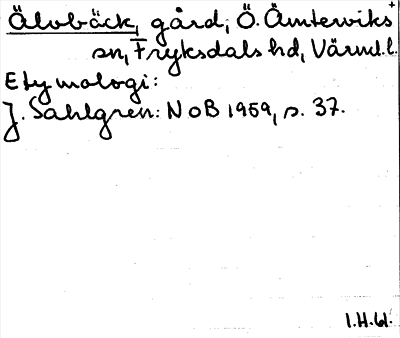 Älvbäck, gård, Ö. Ämterviks
sn, Fryksdals hd, Värml. l.
Etymologi:
J. Sahlgren: NoB 1959, s. 37.
I.H.61.